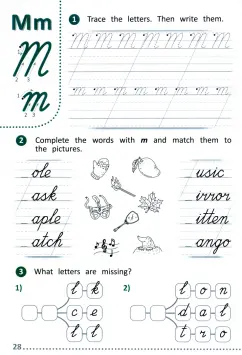 Mm
1 Trace the letters. Then write them.
M
1
2 3
M M M M M M M
m
1
2 3
m m m m m m m
2 Complete the words with m and match them to
the pictures.
ole usic
ask irror
aple itten
atch ango
3 What letters are missing?
1) l k 2) t o n
c e d a l
l l t r o
28